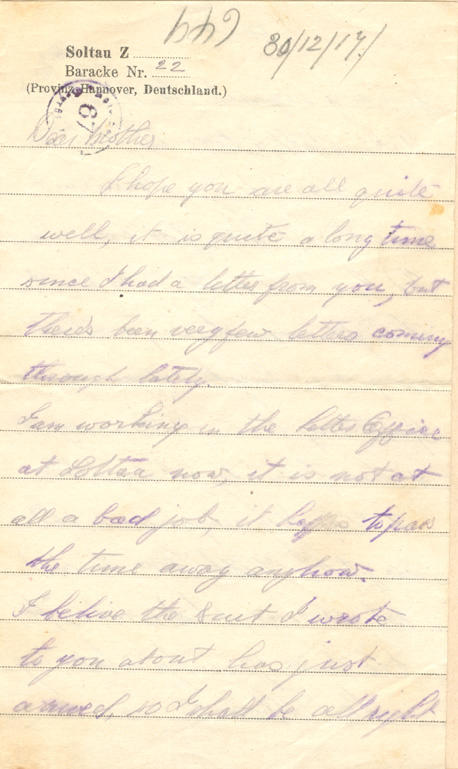 649
30/12/17/
Soltau Z
Baracke Nr. 22
(Provinz Hannover, Deutschland.)
67
Dear Mother
I hope you are all quite
well, it is quite a long time
since I had a letter from you, but
there's been very few letters coming
through lately.
I am working in the letter Office
at Soltau now, it is not at
all a bad job, it helps to pass
the time away anyhow.
I belive the suit I wrote
to you about has just
arived, so I shall be all right